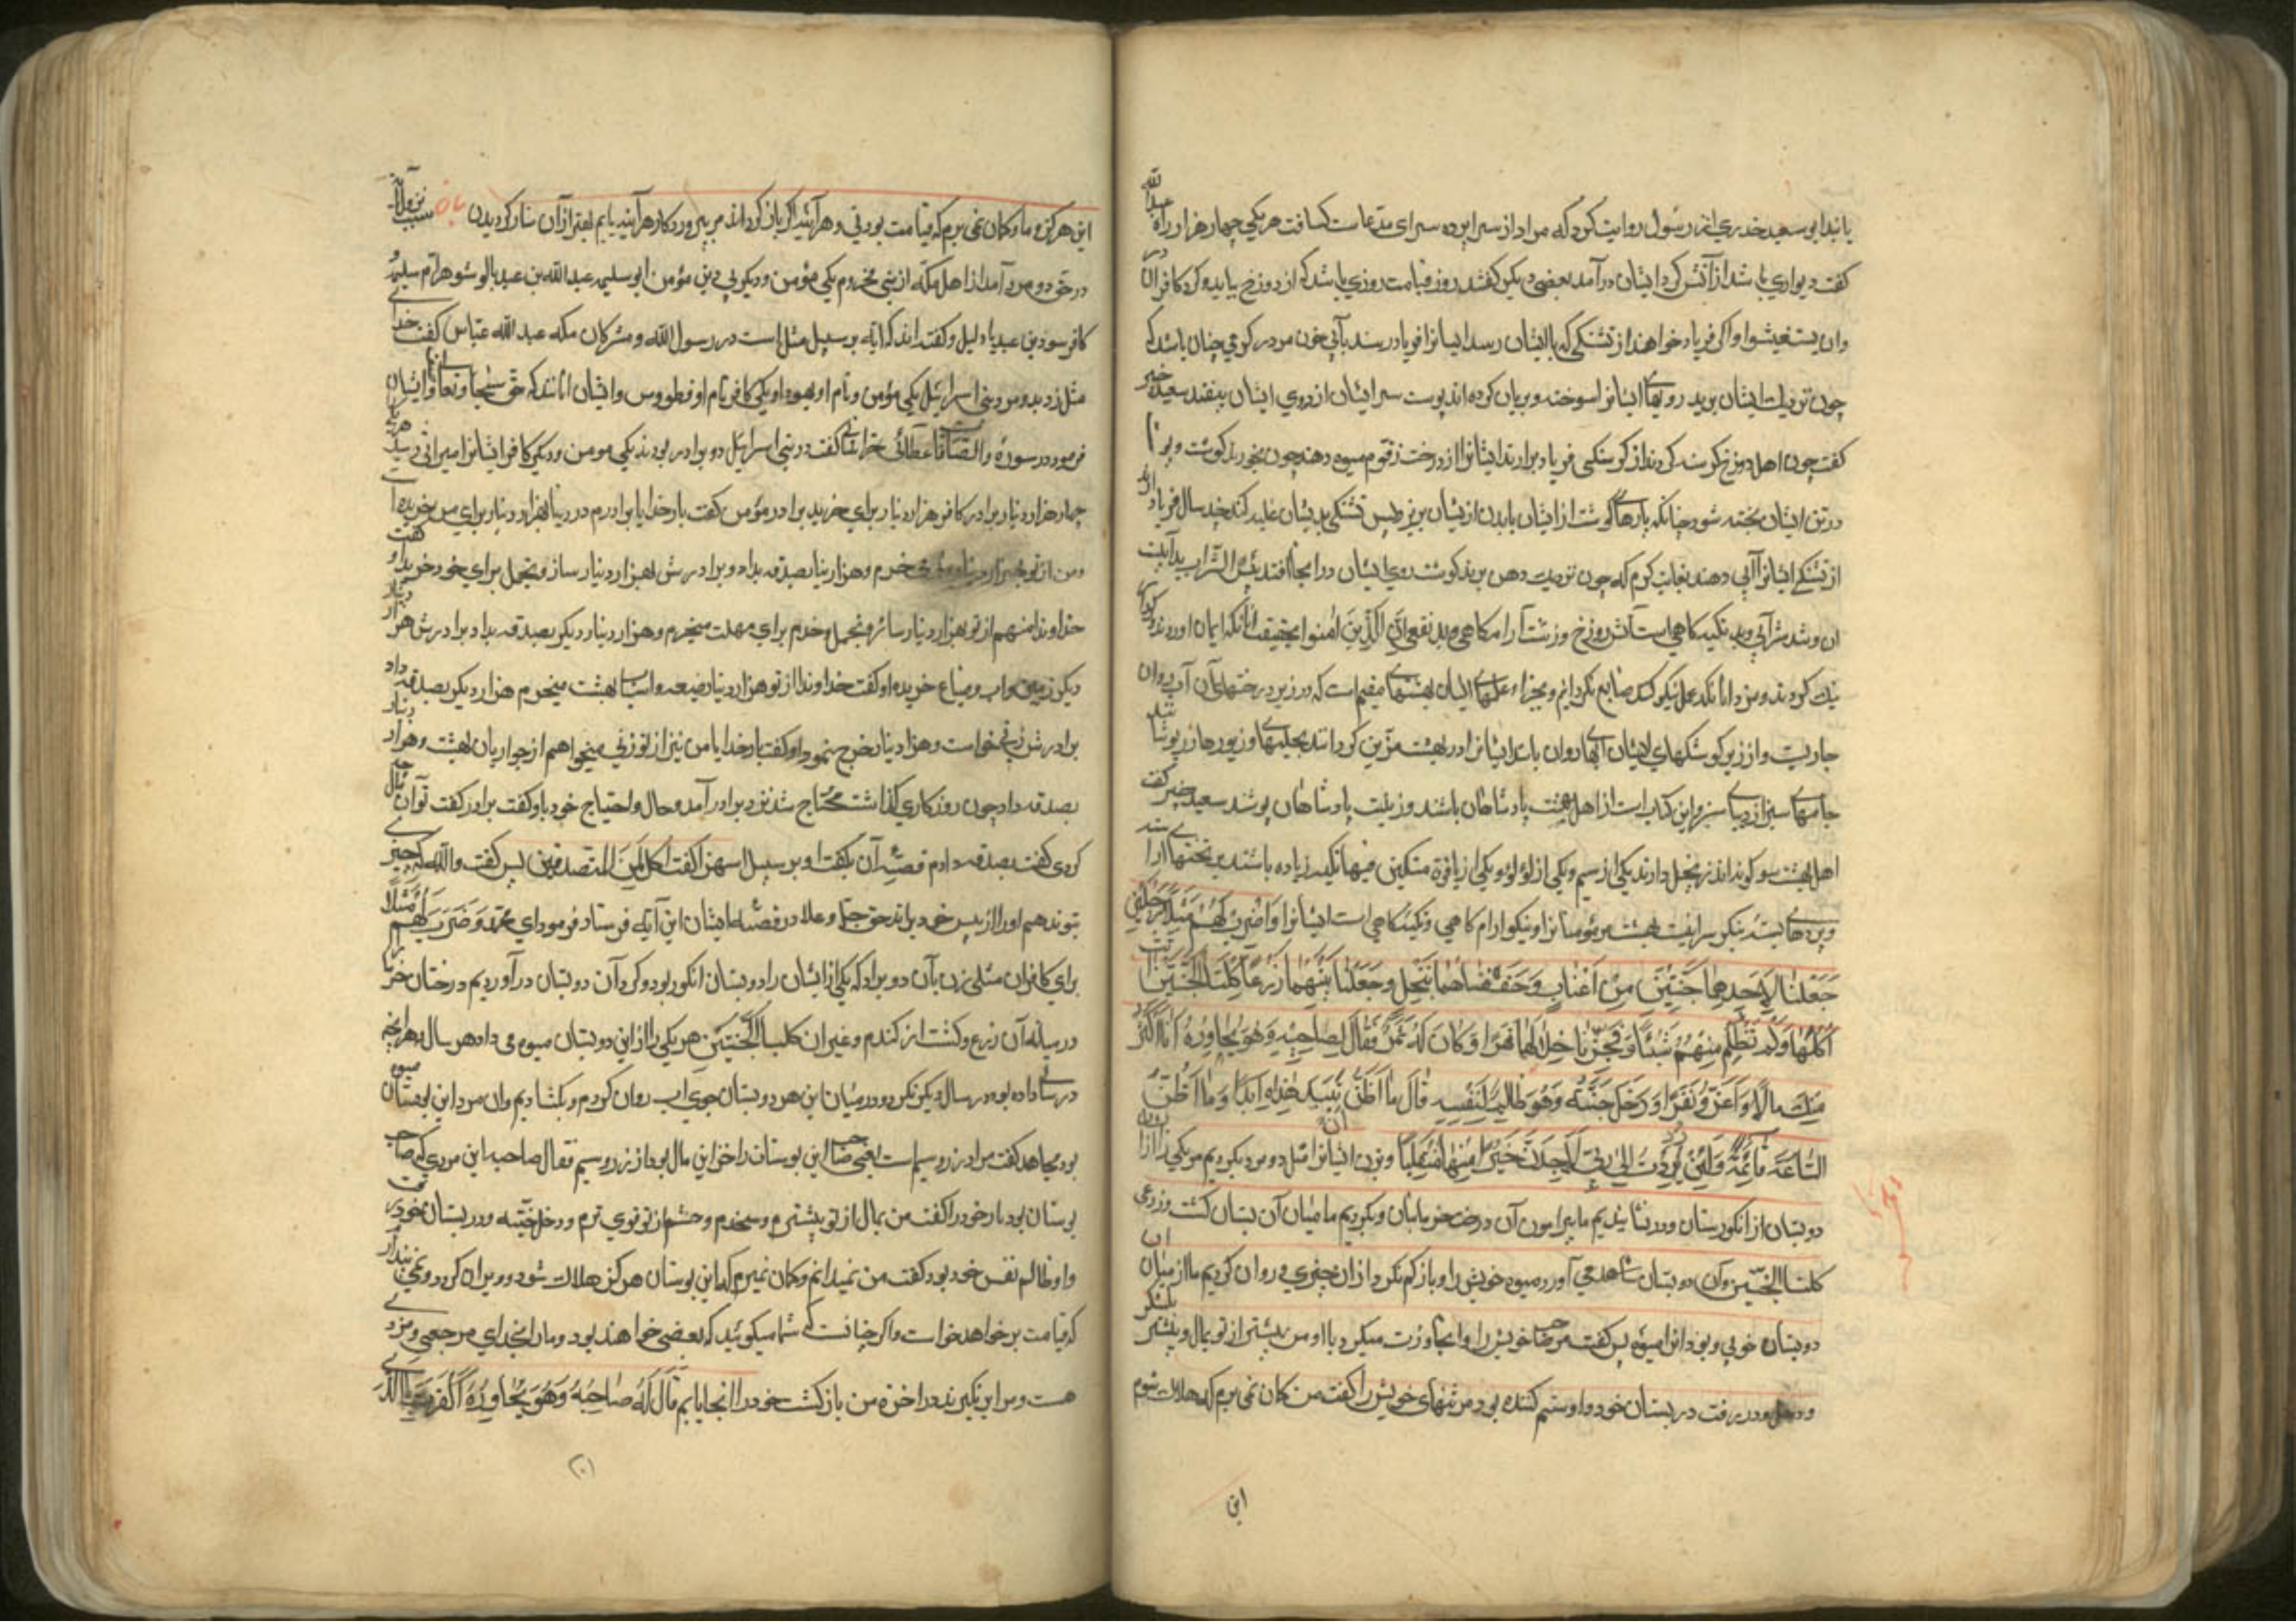 یابند ابو سعید خدری از رسول روایت کرد که مراد از سرا پرده سرای که هر یکی چهار هزار راه
گفت دیواری باشد از آتش گرد ایشان درآمد بعضی دیگر گفتند روز قیامت روزی باشد که از دوزخ بیاید و گرد کافران در
وان یستغیثوا و اگر فریاد خواهند از تشنگی که با ایشان رسد ایشانرا فریاد رسند بآبی چون
چون نزدیک ایشان برند رویهای ایشانرا سوخته و بریان کرده اند پوست سر ایشان از روی ایشان بیفتد سعید جبیر
گفت چون اهل دوزخ گرسنه گردند از گرسنگی فریاد برآرند ایشانرا از درخت زقوم میوه دهند چون بخورند گوشت و پوست
در تن ایشان پخته شود چنانکه پارهای گوشت از ایشان بریزد پس تشنگی بدیشان غلبه کند چند سال فریاد
از تشنگی ایشانرا آبی دهند بغایت گرم که چون نزدیک دهن برند گوشت روی ایشان در آنجا افتد بئس الشراب بد آبیست
آن و بد تکیه گاهی است آتش دوزخ ان الذین امنوا بحقیقت آنانکه ایمان آوردند و کارهای
نیک کردند و مزد آنانکه عمل نیکو کند ضایع نگردانیم و بجزاء عملهای ایشان بهشتهای مقیم است که در زیر درختهای آن آب روان
جاریست و از زیر کوشکهای ایشان آبها روان باشد ایشانرا در بهشت مزین گردانند بحلیهها و زیورها
جامهای سبز از دیبای سبز و این از اهل بهشت پادشاهان باشند و زینت پادشاهان پوشند سعید جبیر گفت
اهل بهشت سه گونه دارند یکی از سیم و یکی از لؤلؤ و یکی از یاقوت متکئین فیها تکیه زده باشند بر تختهای آراسته
مؤمنانرا و نیکو آرام گاهی و تکیه گاهی است ایشانرا وَاضْرِبْ لَهُمْ مَثَلًا رَجُلَیْنِ
جَعَلْنَا لِاَحَدِهِمَا جَنَّتَیْنِ مِنْ اَعْنَابٍ وَحَفَفْنَاهُمَا بِنَخْلٍ وَجَعَلْنَا بَیْنَهُمَا زَرْعًا کِلْتَا الْجَنَّتَیْنِ اتت
اُکُلَهَا وَلَمْ تَظْلِمْ مِنْهُ شَیْئًا وَفَجَّرْنَا خِلَالَهُمَا نَهَرًا وَکَانَ لَهُ ثَمَرٌ فَقَالَ لِصَاحِبِهِ وَهُوَ یُحَاوِرُهُ اَنَا اَکْثَرُ
مِنْکَ مَالًا وَاَعَزُّ نَفَرًا وَدَخَلَ جَنَّتَهُ وَهُوَ ظَالِمٌ لِنَفْسِهِ قَالَ مَا اَظُنُّ اَنْ تَبِیدَ هٰذِهِ اَبَدًا وَمَا اَظُنُّ
السَّاعَةَ قَائِمَةً وَلَئِنْ رُدِدْتُ اِلٰی رَبِّی لَاَجِدَنَّ خَیْرًا مِنْهَا مُنْقَلَبًا و بزن ایشانرا مثل دو مرد بکردیم مر یکی را از ان
دو بستان از انگورستان و درنشاندیم ما پیرامون آن درخت خرما و بکردیم ما میان آن بستان کشت و زرعی
کلتا الجنتین و آن دو بستان می آورد میوه خویش را و باز کم نکرد از آن چیزی و روان کردیم ما از میان آن
دو بستان جویی و بود او را میوه پس گفت مر صاحب خویش را و مجاورت میکرد با او من بیشترم از تو بمال و بیشتر بلشکر
و در رفت در بستان خود و او ستم کننده بود مر تنهای خویش را گفت من گمان نمی برم که هلاک شوم
این
این هرگز و ما گمان نمی برم که قیامت بودنی و هر آینه اگر باز گردانند مر بپروردگار هر آینه یابم بهتر از آن باز گردیدن سبب نزول آیة
در حق دو مرد آمد از اهل مکه از بنی مخزوم یکی مؤمن و دیگر بی دین مؤمن ابو سلمه عبد الله بن عبد
کافر اسود بن عبد و گفته اند که آیه بر سبیل مثل است در رسول الله و مشرکان مکه عبد الله عباس گفت خدای
مثل زد بدو مرد بنی اسرائیل یکی مؤمن و نام او یهودا و یکی کافر نام او فطروس و ایشان آنانند که حق سبحانه و تعالی ایشان
فرمود در سورة والصافات عطائی خراسانی گفت در بنی اسرائیل دو برادر بودند یکی مومن و دیگر کافر ایشانرا میراثی رسید هر یک
چهار هزار دینار برادر کافر هزار دینار برای خرید برادر مؤمن گفت بار خدایا برادرم در دنیا بهزار دینار برای خریده
و من از تو بهزار دینار می خرم و هزار دینار بصدقه بداد و برادرش بهزار دینار ساز و تجمل برای خود خرید او گفت
خداوندا من هم از تو بهزار دینار ساز و تجمل و خدم برای بهشت میخرم و هزار دینار دیگر بصدقه بداد برادرش هزار دینار
دیگر زمین و اب و ضیاع خریده او گفت خداوندا از تو هزار دینار ضیعه و اسباب بهشت میخرم هزار دیگر بصدقه داد
برادرش زنی خواست و هزار دینار خرج نمود او گفت بار خدایا من نیز از تو زنی میخواهم از جواریان بهشت و هزار دینار
بصدقه داد چون روزگاری گذاشت محتاج شد نزد برادر آمد و حال و احتیاج خود باو گفت برادر گفت تو آن مال چه
کردی گفت بصدقه دادم قصه آن بگفت او بر سبیل استهزا گفت اکل لمن المتصدقین پس گفت والله که چیزی
بتو ندهم او را از پیش خود براند حق جل و علا در قصه ایشان این آیه فرستاد فرمود ای محمد وَضَرَبَ لَهُمْ مَثَلًا
برای کافران مثلی بزن بآن دو برادر که یکی از ایشان را دو بستان انگور بود و گرد آن دو بستان درآوردیم درختان خرما
در میانه آن زرع و کشت از گندم و غیر آن کلتا الجنتین هر یکی را از این دو بستان میوه می داد هر سال هر انچه
در سال داده بود در سال دیگر نکرد و در میان این هر دو بستان جوی اب روان کردم و بگشادیم و ان مرد این بوستان میوه
بود مجاهد گفت مراد زر و سیم است یعنی صاحب این بوستان را جز این مال بود از زر و سیم فقال لصاحبه این مردی که صاحب
بوستان بود یار خود را گفت من بمال از تو بیشترم و بخدم و حشم از تو قوی ترم و دخل جنته و در بستان خود رفت
و او ظالم نفس خود بود گفت من نمیدانم و گمان نمیبرم که این بوستان هرگز هلاک شود و ویران گردد و نمی پندارم
که قیامت بر خواهد خواست و اگر چنانست که شما میگوئید که بعضی خواهند بود و ما را بخدای مرجعی و مزدی
هست و من این نگیرند در آخرة من باز گشت خود را آنجا یابم قَالَ لَهُ صَاحِبُهُ وَهُوَ یُحَاوِرُهُ اَکَفَرْتَ بِالَّذِی
(۲۰)